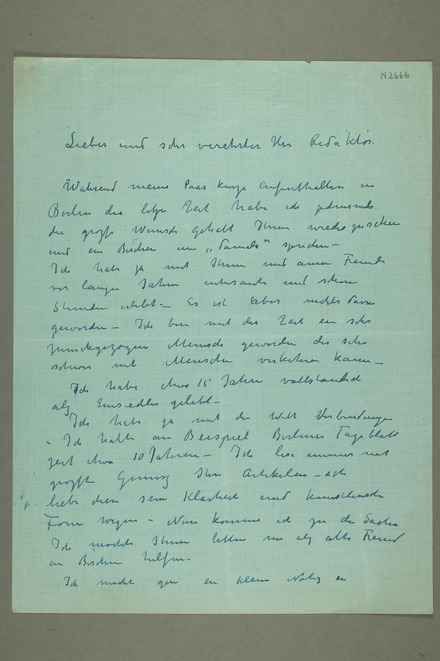 N2666
Lieber und sehr verehrter Herr Redaktör.
Während meine Paar kurze Aufenthalten in
Berlin die letzte Zeit habe ich jedesmal
die grosse Wunsch gehabt Ihnen wiederzusehen
und ein Bischen um „ " sprechen –
Ich habe ja mit Ihnen und Freunde
vor langer Jahren interesante und schöne
Stunden erlebt – Es ist leider nichts davon
geworden – Ich bin mit der Zeit ein sehr
zurückgezogen Mensch geworden der sehr
schwer mit Menschen verkehren kann –
Ich habe etwa 15 Jahre vollständid
als Einsiedler gelebt –
Ich habe ja mit die Welt Verbindungen
– Ich halte zum Beispiel Berliner Tageblatt
seit etwa 10 Jahren – Ich lese immer mit
grösste Ihre Artikelen – ich
liebe dien sein Klarheit und künstlerische
Form wegen – Nun komme ich zu die Sache
Ich möchte Ihnen bitten mir als alte Freund
ein Bischen helfen –
Ich möchte gern ein klein Notiz in